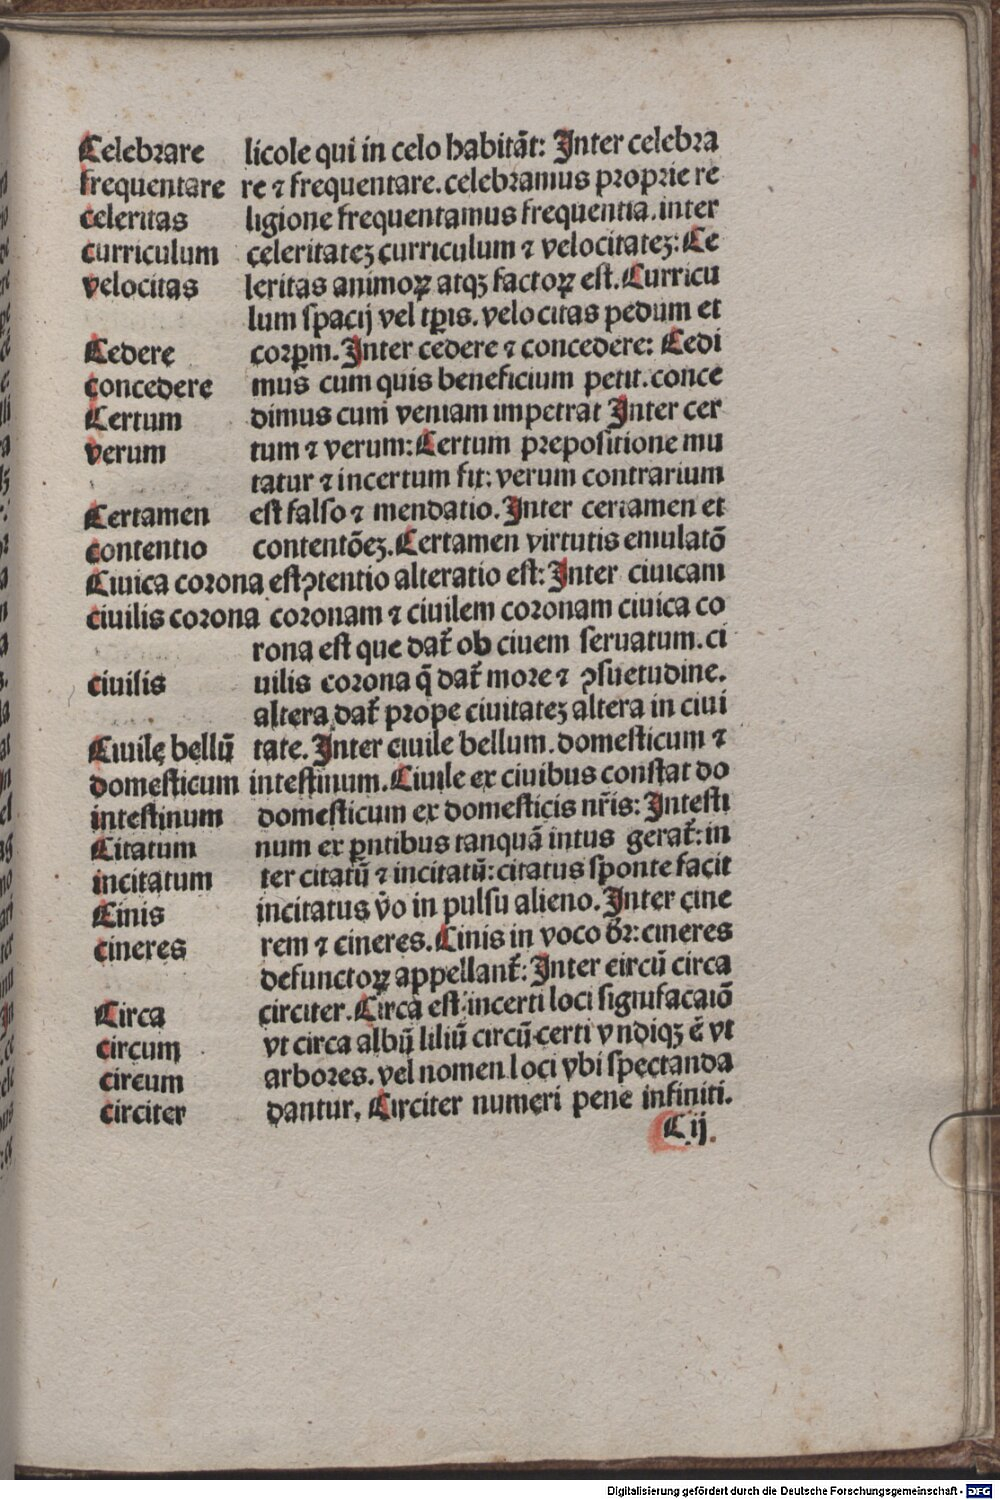 Celebrare licole qui in celo habitāt: Inter celebra
frequentare re ⁊ frequentare. celebramus proprie re
celeritas ligione frequentamus frequentia. inter
curriculum celeritateꝫ curriculum ⁊ velocitateꝫ: Ce
velocitas leritas animoꝝ atqꝫ factoꝝ est. Curricu
lum spacij vel tꝑis. velocitas pedum et
Cedere corꝑm. Inter cedere ⁊ concedere: Cedi
concedere mus cum quis beneficium petit. conce
Certum dimus cum veniam impetrat Inter cer
verum tum ⁊ verum: Certum prepositione mu
tatur ⁊ incertum fit: verum contrarium
Certamen est falso ⁊ mendatio. Inter certamen et
contentio contentōeꝫ. Certamen virtutis emulatō
Ciuica corona est ꝯtentio alteratio est: Inter ciuicam
ciuilis corona coronam ⁊ ciuilem coronam ciuica co
rona est que dat᷑ ob ciuem seruatum. ci
ciuilis uilis corona q̄ dat᷑ more ⁊ ꝯsuetudine.
altera dat᷑ prope ciuitateꝫ altera in ciui
Ciuile bellū tate. Inter ciuile bellum. domesticum ⁊
domesticum intestinum. Ciuile ex ciuibus constat do
intestinum domesticum ex domesticis nr̄is: Intesti
Citatum num ex ꝑntibus tanquā intus gerat᷑: in
incitatum ter citatū ⁊ incitatū: citatus sponte facit
Cinis incitatus v̄o in pulsu alieno. Inter cine
cineres rem ⁊ cineres. Cinis in voco dr̄: cineres
defunctoꝝ appellant᷑: Inter circū circa
Circa circiter. Circa est incerti loci significaiō
circum vt circa albū liliū circū certi vndiqꝫ ē vt
circum arbores. vel nomen loci vbi spectanda
circiter dantur. Circiter numeri pene infiniti.
C ij.
Digitalisierung gefördert durch die Deutsche Forschungsgemeinschaft - DFG